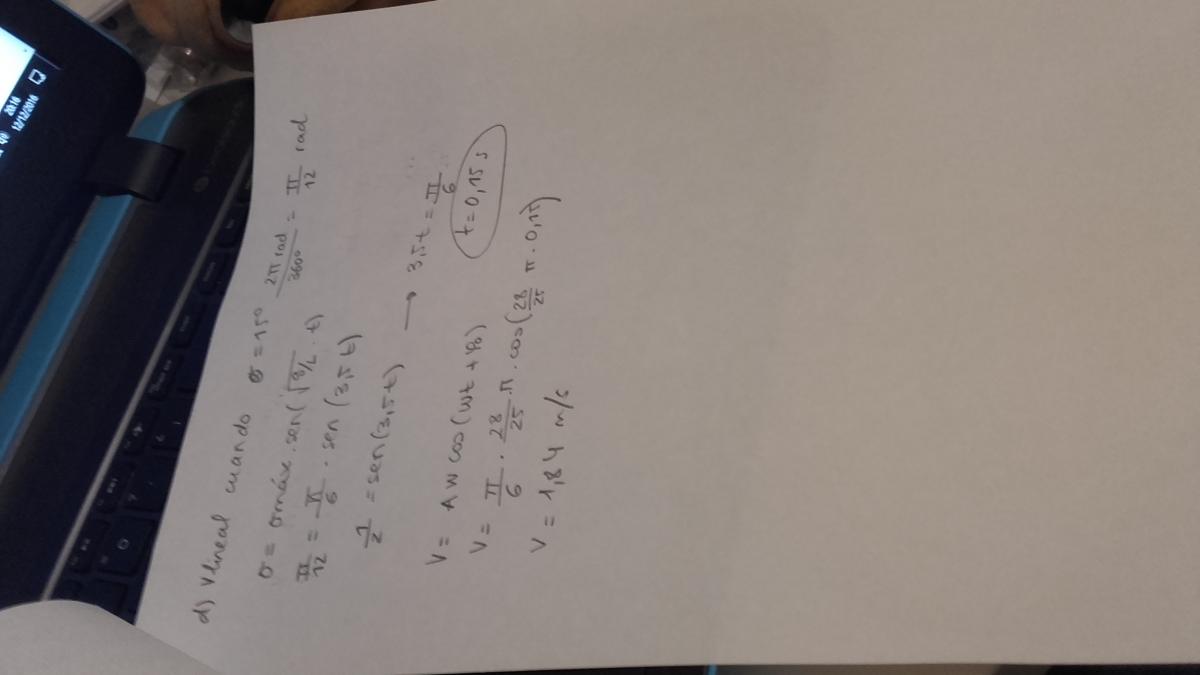 d) Vlineal cuando σ = 15º 2π rad / 360º = π / 12 rad
σ = σmáx · sen(√g/L · t)
π/12 = π/6 · sen (3,5 t)
1/2 = sen(3,5t) → 3,5t = π/6
t = 0,15 s
V = A w cos(wt + φo)
V = π/6 · 28/25 · π · cos(28/25 π · 0,15)
V = 1,84 m/s
20:16
12/12/2016